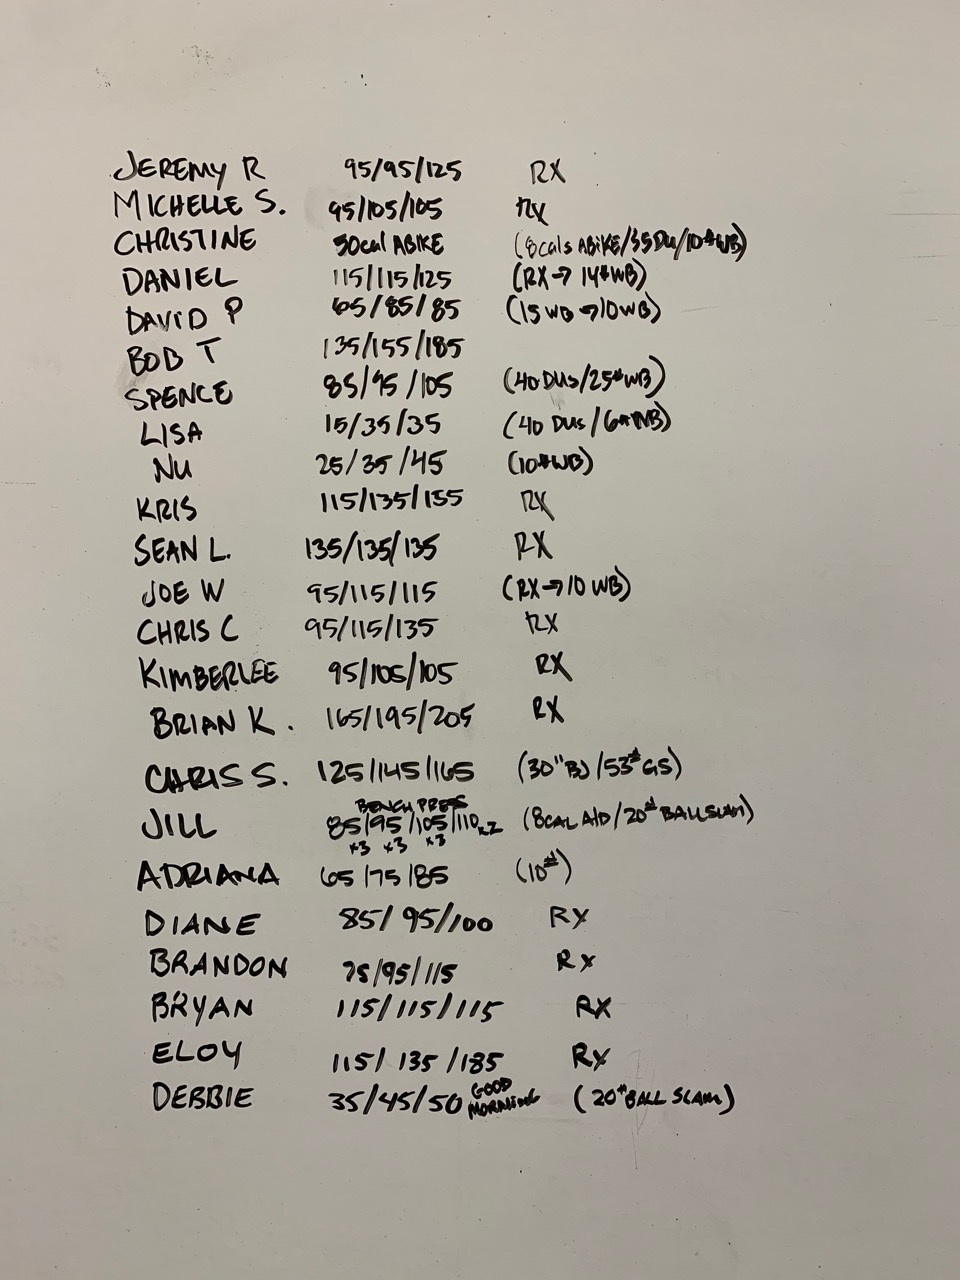 JEREMY R 95/95/125 RX
MICHELLE S. 95/105/105 RX
CHRISTINE 50cal ABIKE (8cals ABIKE/35DU/10#WB)
DANIEL 115/115/125 (RX→14#WB)
DAVID P 65/85/85 (15WB→10WB)
BOB T 135/155/185
SPENCE 85/95/105 (40DUs/25#WB)
LISA 15/35/35 (40 DUs/6#WB)
NU 25/35/45 (10#WB)
KRIS 115/135/155 RX
SEAN L. 135/135/135 RX
JOE W 95/115/115 (RX→10 WB)
CHRIS C 95/115/135 RX
KIMBERLEE 95/105/105 RX
BRIAN K. 165/195/205 RX
CHRIS S. 125/145/165 (30"BJ/53#GS)
BENCH PRESS
JILL 85/95/105/110x2 (8CAL A/D/20#BALL SLAM)
x3 x3 x3
ADRIANA 65/75/85 (10#)
DIANE 85/95/100 RX
BRANDON 75/95/115 RX
BRYAN 115/115/115 RX
ELOY 115/135/185 RX
DEBBIE 35/45/50 GOOD MORNING (20#BALL SLAM)